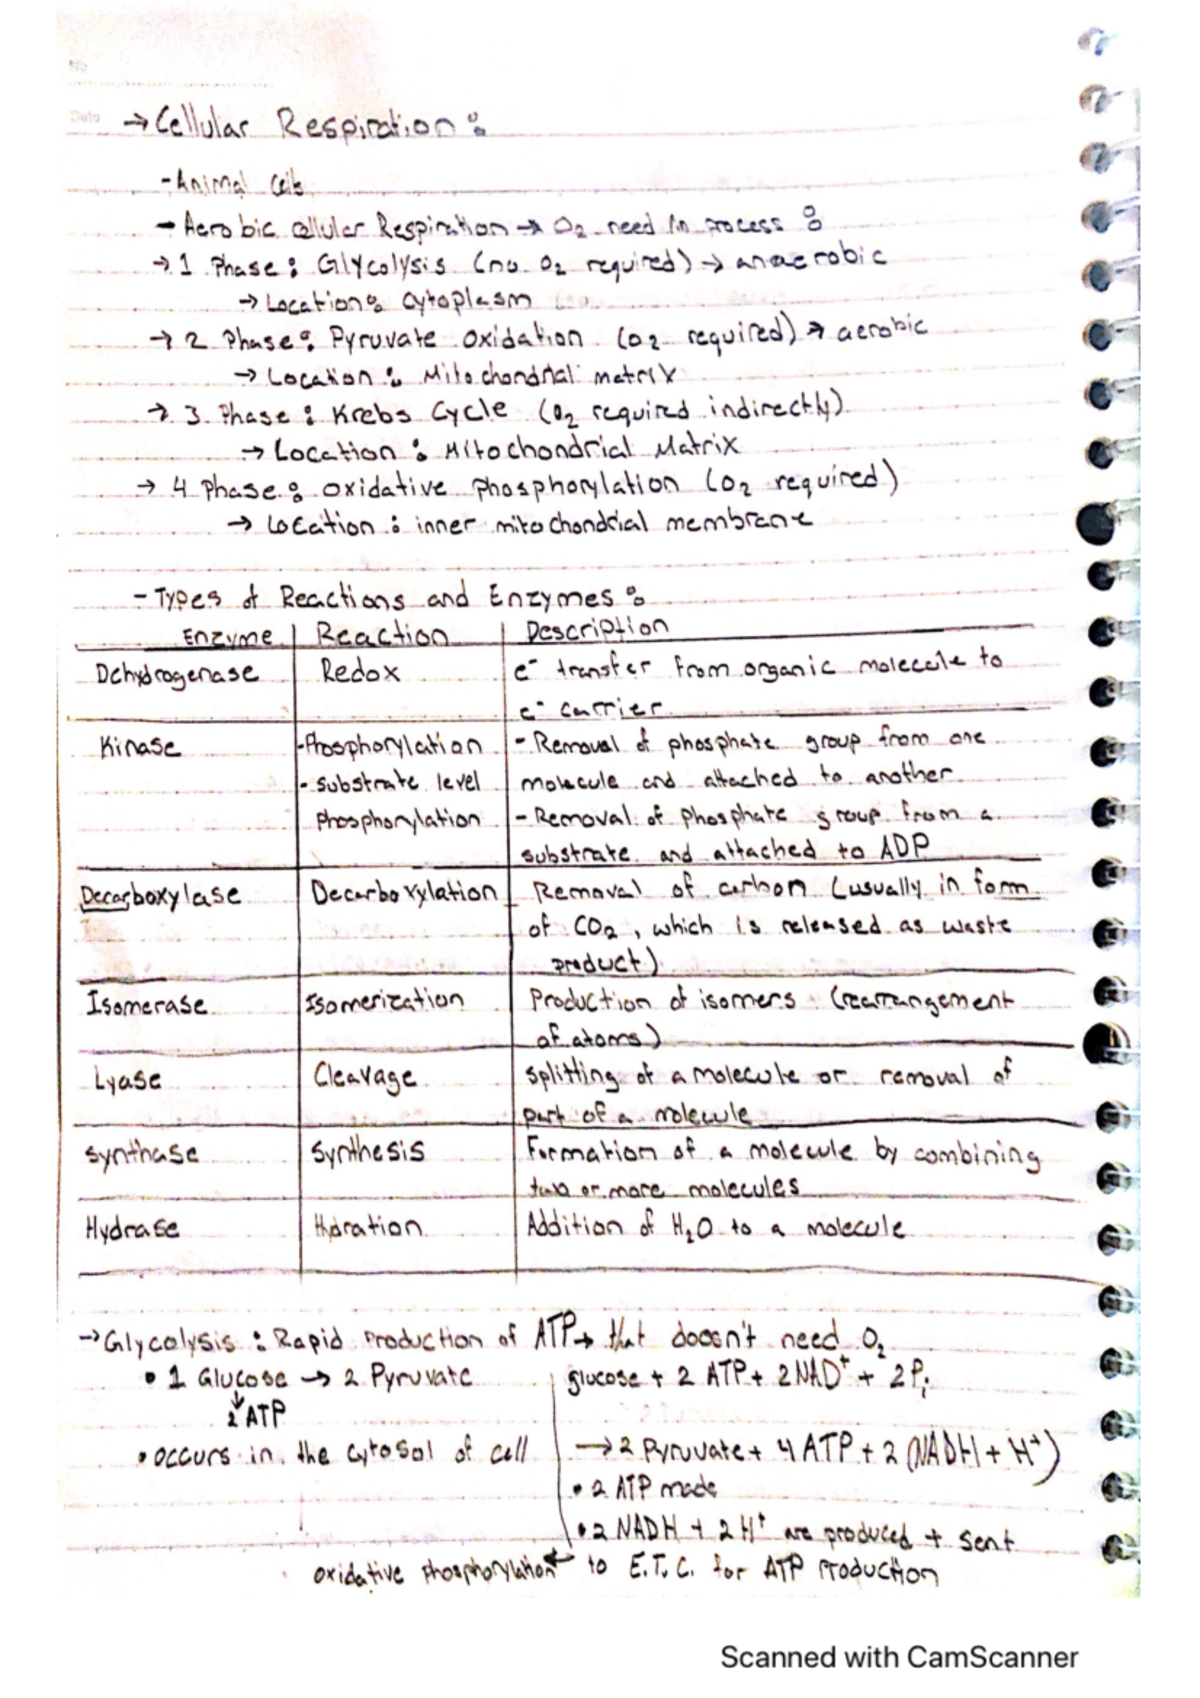 No
Date
→ Cellular Respiration:
- Animal cells
- Aerobic cellular Respiration → O₂ need in process:
→ 1 Phase: Glycolysis (no O₂ required) → anaerobic
→ Location: Cytoplasm
→ 2 Phase: Pyruvate oxidation (O₂ required) → aerobic
→ Location: Mitochondrial matrix
→ 3 Phase: Krebs Cycle (O₂ required indirectly)
→ Location: Mitochondrial Matrix
→ 4 Phase: oxidative phosphorylation (O₂ required)
→ Location: inner mitochondrial membrane
- Types of Reactions and Enzymes:
Enzyme | Reaction | Description
Dehydrogenase | Redox | e⁻ transfer from organic molecule to
e⁻ carrier
Kinase | -Phosphorylation | - Removal of phosphate group from one
- substrate level | molecule and attached to another
Phosphorylation | - Removal of phosphate group from a
substrate and attached to ADP
Decarboxylase | Decarboxylation | Removal of carbon (usually in form
of CO₂, which is released as waste
product)
Isomerase | Isomerization | Production of isomers (rearrangement
of atoms)
Lyase | Cleavage | splitting of a molecule or removal of
part of a molecule
synthase | Synthesis | Formation of a molecule by combining
two or more molecules
Hydrase | Hdration | Addition of H₂O to a molecule
→ Glycolysis: Rapid Production of ATP → that doesn't need O₂
• 1 Glucose → 2 Pyruvate
↓
2 ATP
• occurs in the cytosol of cell
glucose + 2 ATP + 2NAD⁺ + 2Pᵢ
→ 2 Pyruvate + 4 ATP + 2 (NADH + H⁺)
• 2 ATP made
• 2 NADH + 2H⁺ are produced + sent
oxidative phosphorylation ← to E.T.C. for ATP Production
Scanned with CamScanner